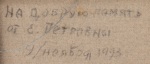 на добрую память
от Е. Петровны
9/ноября 1993